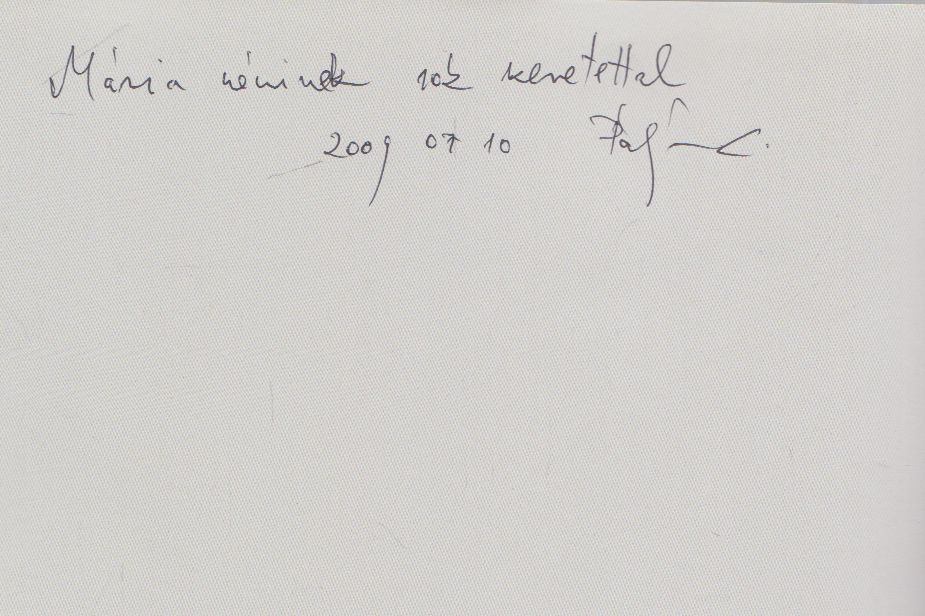 Mária néninek sok szeretettel
2009 07 10